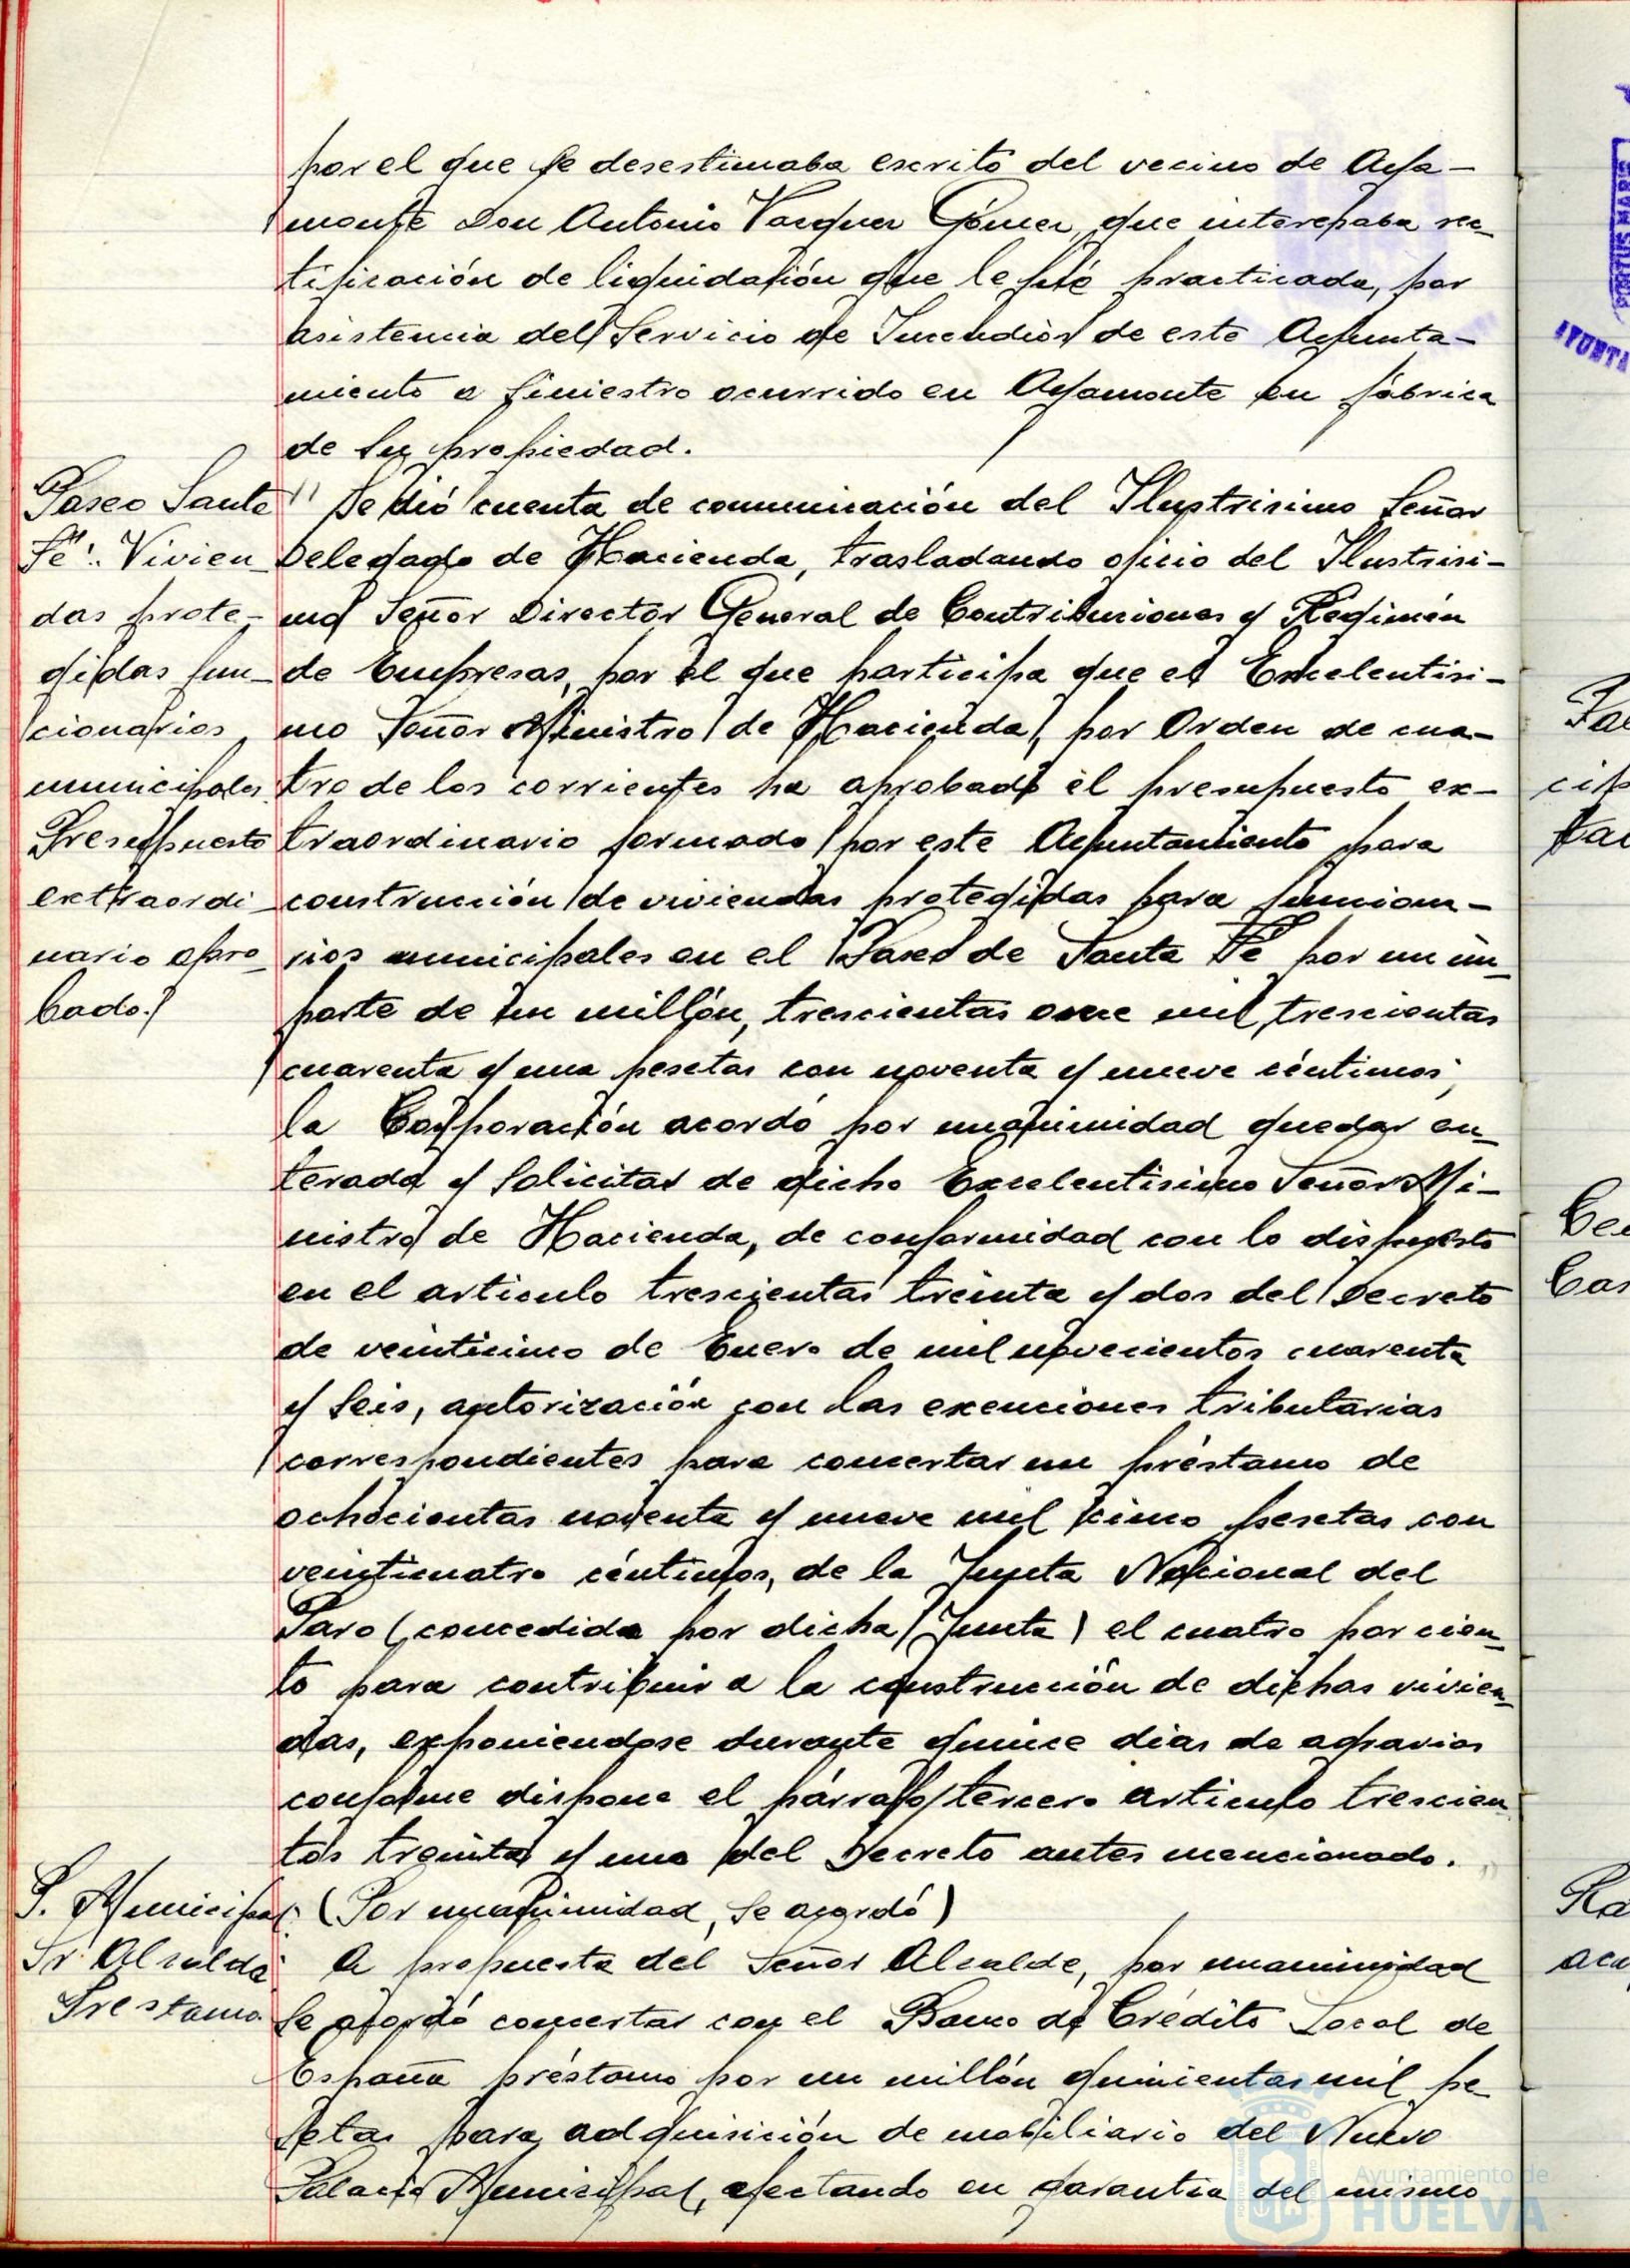 por el que se desestimaba escrito del vecino de Aya-
monte Don Antonio Vazquez Gómez, que interesaba rec-
tificación de liquidación que le fué practicada, por
asistencia del Servicio de Incendios de este Ayunta-
miento a siniestro ocurrido en Ayamonte en fábrica
de su propiedad.
Paseo Santa
Fé: Vivien-
das prote-
gidas fun-
cionarios
municipales.
Presupuesto
extraordi-
nario apro-
bado.
" Se dió cuenta de comunicación del Ilustrisimo Señor
Delegado de Hacienda, trasladando oficio del Ilustrisi-
mo Señor Director General de Contribuciones y Regimén
de Empresas, por el que participa que el Excelentisi-
mo Señor Ministro de Hacienda, por Orden de cua-
tro de los corrientes ha aprobado el presupuesto ex-
traordinario formado por este Ayuntamiento para
construcción de viviendas protegidas para funciona-
rios municipales en el Paseo de Santa Fé por un im-
porte de un millón, trescientas once mil, trescientas
cuarenta y una pesetas con noventa y nueve céntimos;
la Corporación acordó por unanimidad quedar en-
terada y solicitar de dicho Excelentisimo Señor Mi-
nistro de Hacienda, de conformidad con lo dispuesto
en el articulo trescientas treinta y dos del Decreto
de veinticinco de Enero de mil novecientos cuarenta
y seis, autorización con las exenciones tributarias
correspondientes para concertar un préstamo de
ochocientas noventa y nueve mil cinco pesetas con
veinticuatro céntimos, de la Junta Nacional del
Paro (concedida por dicha Junta) el cuatro por cien-
to para contribuir a la construcción de dichas vivien-
das, exponiendose durante quince dias de agravios
conforme dispone el párrafo tercero articulo trescien-
tos treinta y uno del Decreto antes mencionado. "
(Por unanimidad, se acordó)
P. Municipal.
Sr. Alcalde
Prestamo.
A propuesta del Señor Alcalde, por unanimidad
se acordó concertar con el Banco de Crédito Local de
España préstamo por un millón quinientas mil pe-
setas para adquisición de mobiliario del Nuevo
Palacio Municipal, afectando en garantia del mismo
PORTUS MARIS
AYUNTA
Ayuntamiento de
HUELVA